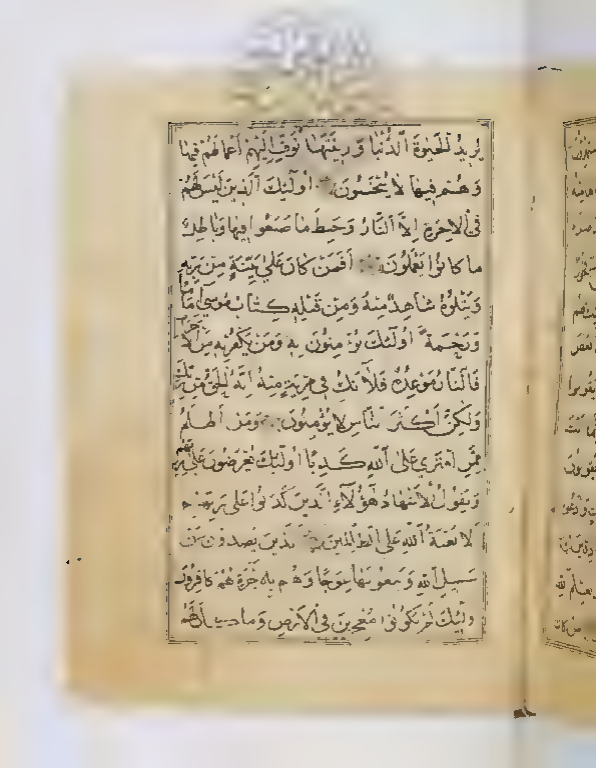 يُرِيدُ الْحَيٰوةَ الدُّنْيَا وَزِينَتَهَا نُوَفِّ اِلَيْهِمْ اَعْمَالَهُمْ فِيهَا
وَهُمْ فِيهَا لَا يُبْخَسُونَ اُولٰئِكَ الَّذِينَ لَيْسَ لَهُمْ
فِي الْاٰخِرَةِ اِلَّا النَّارُ وَحَبِطَ مَا صَنَعُوا فِيهَا وَبَاطِلٌ
مَا كَانُوا يَعْمَلُونَ اَفَمَنْ كَانَ عَلٰى بَيِّنَةٍ مِنْ رَبِّهِ
وَيَتْلُوهُ شَاهِدٌ مِنْهُ وَمِنْ قَبْلِهِ كِتَابُ مُوسٰى اِمَامًا
وَرَحْمَةً اُولٰئِكَ يُؤْمِنُونَ بِهِ وَمَنْ يَكْفُرْ بِهِ مِنَ الْاَحْزَابِ
فَالنَّارُ مَوْعِدُهُ فَلَا تَكُ فِي مِرْيَةٍ مِنْهُ اِنَّهُ الْحَقُّ مِنْ رَبِّكَ
وَلٰكِنَّ اَكْثَرَ النَّاسِ لَا يُؤْمِنُونَ وَمَنْ اَظْلَمُ
مِمَّنِ افْتَرٰى عَلَى اللّٰهِ كَذِبًا اُولٰئِكَ يُعْرَضُونَ عَلٰى رَبِّهِمْ
وَيَقُولُ الْاَشْهَادُ هٰؤُلَاءِ الَّذِينَ كَذَبُوا عَلٰى رَبِّهِمْ
اَلَا لَعْنَةُ اللّٰهِ عَلَى الظَّالِمِينَ الَّذِينَ يَصُدُّونَ عَنْ
سَبِيلِ اللّٰهِ وَيَبْغُونَهَا عِوَجًا وَهُمْ بِالْاٰخِرَةِ هُمْ كَافِرُونَ
اُولٰئِكَ لَمْ يَكُونُوا مُعْجِزِينَ فِي الْاَرْضِ وَمَا كَانَ لَهُمْ